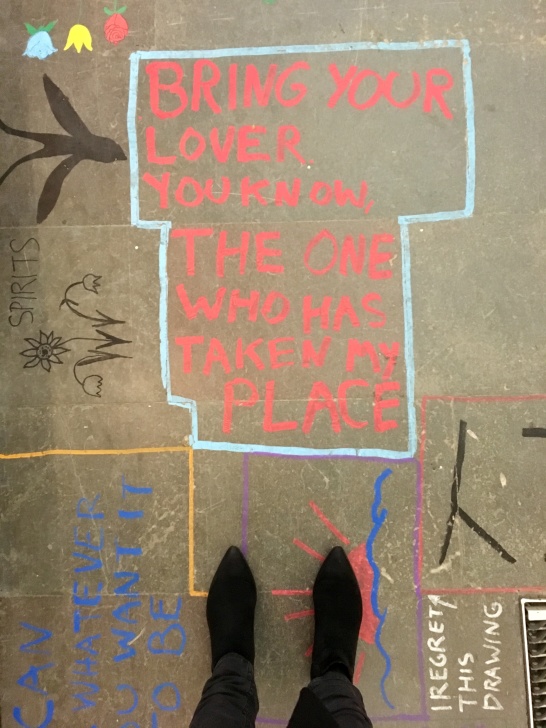 BRING YOUR
LOVER
YOU KNOW,
THE ONE
WHO HAS
TAKEN MY
PLACE
SPIRITS
CAN
WHATEVER
U WANT IT
TO BE
I REGRET
THIS
DRAWING